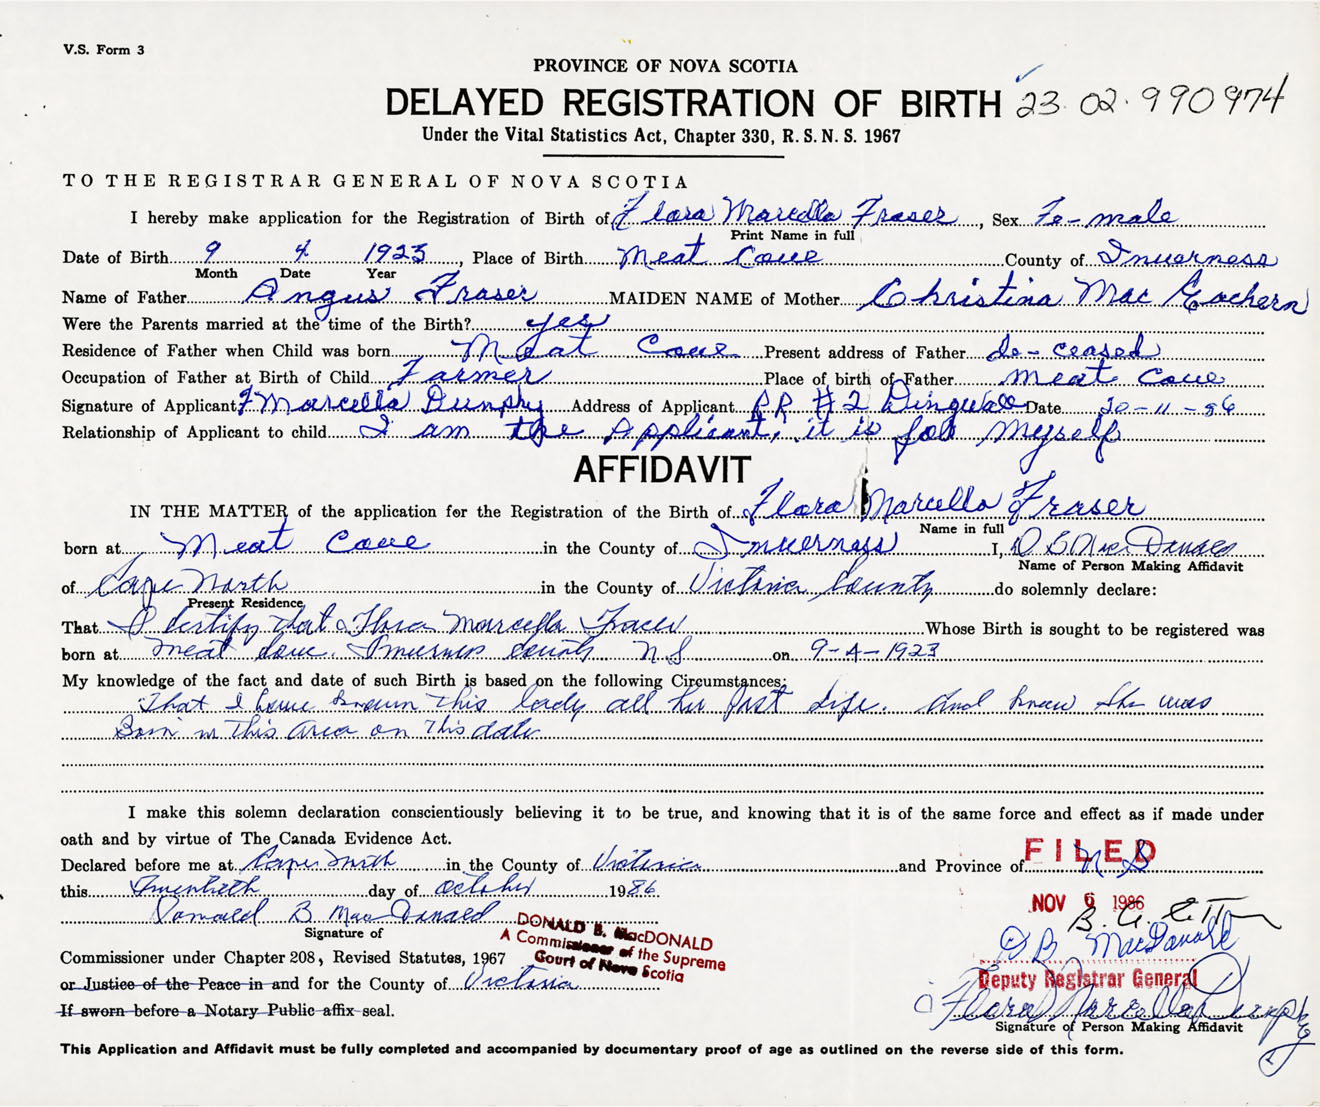 V.S. Form 3
PROVINCE OF NOVA SCOTIA
DELAYED REGISTRATION OF BIRTH 23.02.990974
Under the Vital Statistics Act, Chapter 330, R.S.N.S. 1967
TO THE REGISTRAR GENERAL OF NOVA SCOTIA
I hereby make application for the Registration of Birth of Flora Marcella Fraser, Sex Fe-male
Print Name in full
Date of Birth 9 4 1923, Place of Birth Meat Cove County of Inverness
Month Date Year
Name of Father Angus Fraser MAIDEN NAME of Mother Christina Mac Eachern
Were the Parents married at the time of the Birth? yes
Residence of Father when Child was born Meat Cove Present address of Father de-ceased
Occupation of Father at Birth of Child Farmer Place of birth of Father Meat Cove
Signature of Applicant F Marcella Dunphy Address of Applicant RR #2 Dingwall Date 20-11-86
Relationship of Applicant to child I am the Applicant, it is for Myself
AFFIDAVIT
IN THE MATTER of the application for the Registration of the Birth of Flora Marcella Fraser
Name in full
born at Meat Cove in the County of Inverness I, D B MacDonald
Name of Person Making Affidavit
of Cape North in the County of Victoria County do solemnly declare:
Present Residence
That I certify that Flora Marcella Whose Birth is sought to be registered was
born at Meat Cove. Inverness County N S on 9-4-1923
My knowledge of the fact and date of such Birth is based on the following Circumstances:
That I have known this lady all her past Life. And know she was
Born in this area on this date
I make this solemn declaration conscientiously believing it to be true, and knowing that it is of the same force and effect as if made under
oath and by virtue of The Canada Evidence Act.
Declared before me at Cape North in the County of Victoria and Province of N S
FILED
this Twentieth day of October 1986
NOV 6 1986
Donald B MacDonald
Signature of
DONALD B. MacDONALD
A Commissioner of the Supreme
Court of Nova Scotia
D B MacDonald
Commissioner under Chapter 208, Revised Statutes, 1967
Deputy Registrar General
or Justice of the Peace in and for the County of Victoria
Flora Marcella Dunphy
If sworn before a Notary Public affix seal.
Signature of Person Making Affidavit
This Application and Affidavit must be fully completed and accompanied by documentary proof of age as outlined on the reverse side of this form.